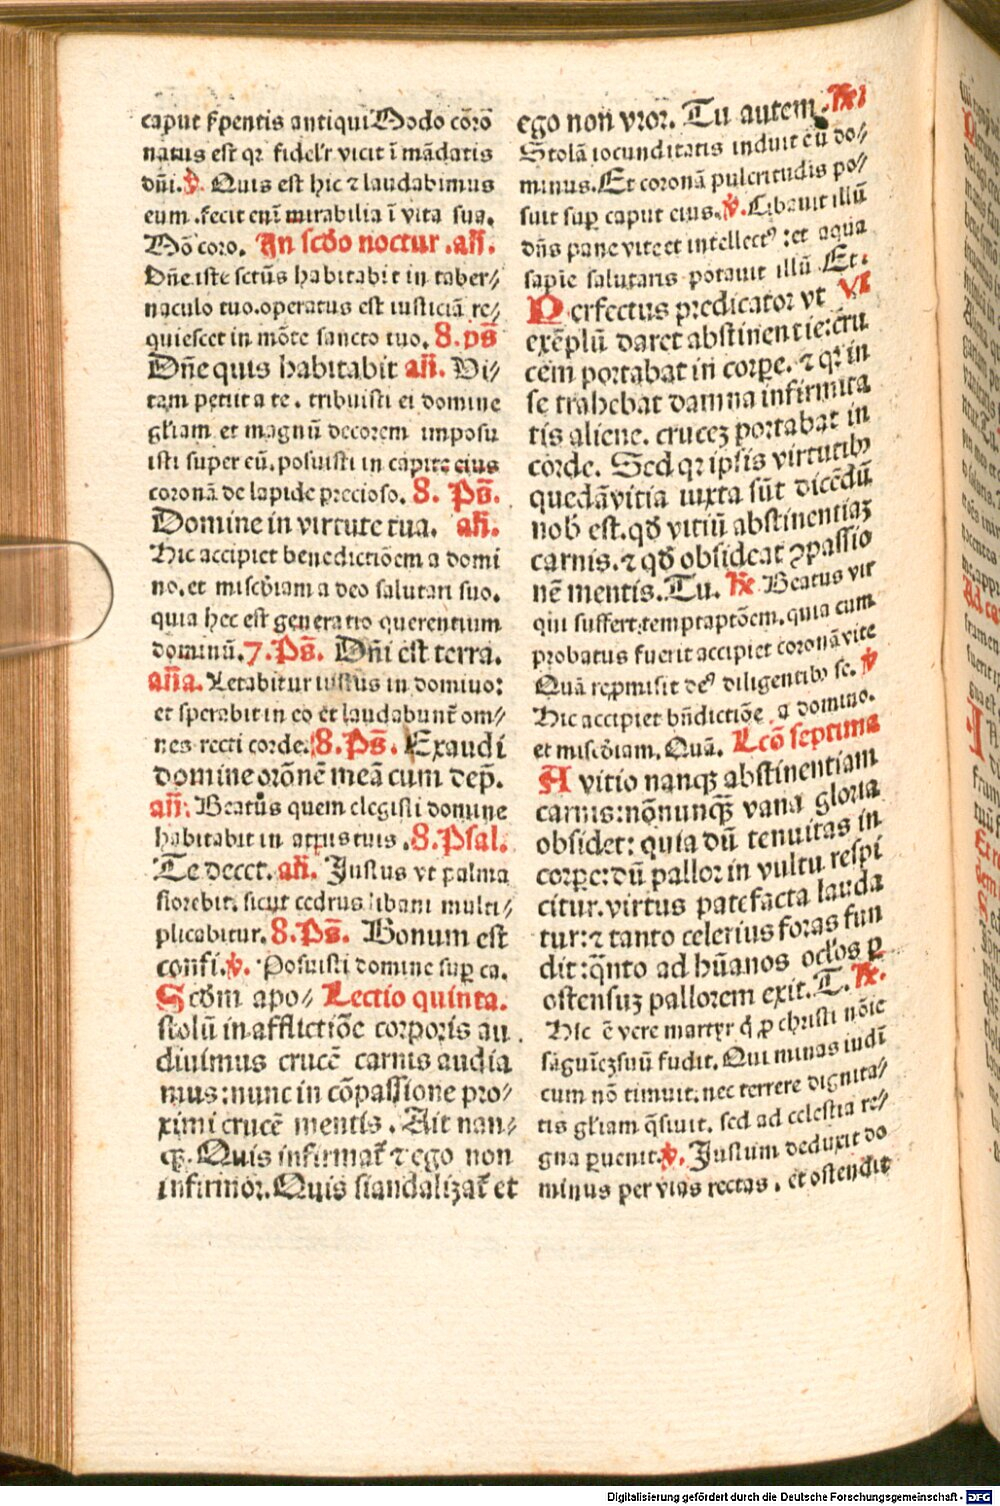 caput ẜpentis antiqui Modo coꝛo
natus est qꝛ fideľr vicit ī mādatis
dn̄i. ℣. Quis est hic ⁊ laudabimus
eum . fecit eni mirabilia ī vita sua.
Mō coro. In scḋo noctur . an̄.
Dn̄e iste sctūs habitabit in taber⸗
naculo tuo.operatus est iusticiā re⸗
quiescet in mōte sancto tuo. 8. ps̄
Dn̄e quis habitabit an̄. Vi⸗
tam petiit a te . tribuisti ei domine
gľiam et magnū decorem imposu
isti super eū. posuisti in capite eius
coronā de lapide precioso. 8. Ps̄.
Domine in virtute tua. an̄.
Hic accipiet benedictiōem a domi
no. et miscḋiam a deo salutari suo.
quia hec est generatio querentium
dominū. 7. Ps̄. Dn̄i est terra.
an̄a. Letabitur iustus in domino:
et sperabit in eo et laudabunt̄ om⸗
nes recti corde. 8. Ps̄. Exaudi
domine orōnē meā cum dep̄.
an̄. Beatus quem elegisti domine
habitabit in atrijs tuis . 8. Psal.
Te decet. an̄. Justus vt palma
florebit. sicut cedrus libani multi⸗
plicabitur. 8. Ps̄. Bonum est
confi. ℣. Posuisti domine suꝑ ca.
Scḋm apo⸗ Lectio quinta.
stolū in afflictiōe corporis au
diuimus crucē carnis audia
mus: nunc in cōpassione pro⸗
ximi crucē mentis . Ait nan⸗
qꝫ. Quis infirmat̄ ⁊ ego non
infirmor. Quis scandalizat̄ et
ego non vror. Tu autem. ℟
Stolā iocunditatis induit eū do⸗
minus. Et coronā pulcritudis po⸗
suit suꝑ caput eius. ℣. Cibauit illū
dn̄s pane vite et intellectꝰ : et aqua
sapīe salutaris potauit illū . Et.
Perfectus predicator vt VI
exēplū daret abstinentie: cru
cem portabat in corꝑe. ⁊ qꝛ in
se trahebat damna infirmita
tis aliene. cruceꝫ portabat in
corde. Sed qꝛ ipsis virtutibꝰ
quedā vitia iuxta sūt dicēdū
nob̄ est. qḋ vitiū abstinentiaꝫ
carnis. ⁊ qḋ obsideat ꝯpassio
nē mentis. Tu. ℟ Beatus vir
qui suffert temptaptōem. quia cum
probatus fuerit accipiet coronā vite
Quā reꝓmisit deꝰ diligentibꝰ se. ℣
Hic accipiet bn̄dictiōe a domino.
et miscḋiam. Quā. Lcō septima
A vitio nanqꝫ abstinentiam
carnis: nōnunqꝫ̄ vana gloria
obsidet: quia dū tenuitas in
corꝑe: dū pallor in vultu respi
citur. virtus patefacta lauda
tur: ⁊ tanto celerius foras fun
dit: qn̄to ad hūanos ocľos ꝑ
ostensuꝫ pallorem exit. T. ℟.
Hic ē vere martyr q̄ ꝓ christi nōie
sāguīeꝫ suū fudit. Qui minas iudi
cum nō timuit. nec terrere dignita⸗
tis gľiam q̄siuit. sed ad celestia re⸗
gna ꝑuenit. ℣. Justum deduxit do
minus per vias rectas . et ostendit
Digitalisierung gefördert durch die Deutsche Forschungsgemeinschaft - DFG